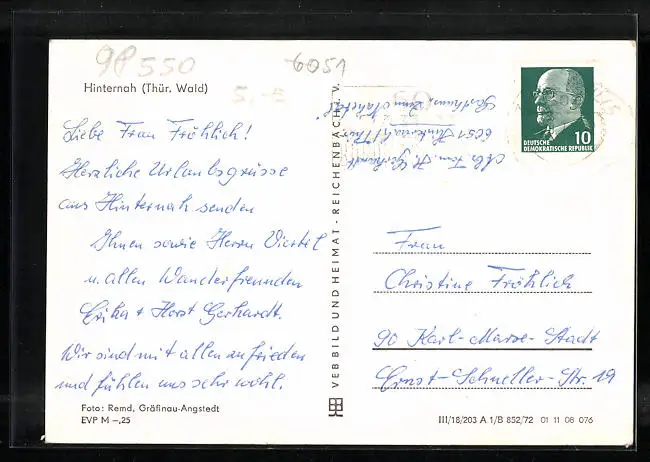 98550
6051
Hinternah (Thür. Wald)
5,-
Liebe Frau Fröhlich!
Herzliche Urlaubsgrüsse
aus Hinternah senden
Ihnen sowie Herrn Viertel
u. allen Wanderfreunden
Erika + Horst Gerhardt.
Wir sind mit allem zufrieden
und fühlen uns sehr wohl.
Foto: Remd, Gräfinau-Angstedt
EVP M –,25
VEB BILD UND HEIMAT · REICHENBACH i. V.
Abs. Fam. H. Gerhardt
6051 Hinternah/Thür.
Gasthaus "Zum Nahetal"
10
DEUTSCHE
DEMOKRATISCHE REPUBLIK
Frau
Christine Fröhlich
90 Karl-Marx-Stadt
Ernst-Schneller-Str. 19
III/18/203 A 1/B 852/72 01 11 08 076